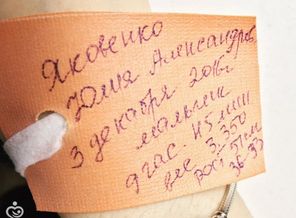 Яковенко
Юлия Александров
3 декабря 2016г
мальчик
9 час. 45 мин
вес 3.350
рост 51 см
36-35